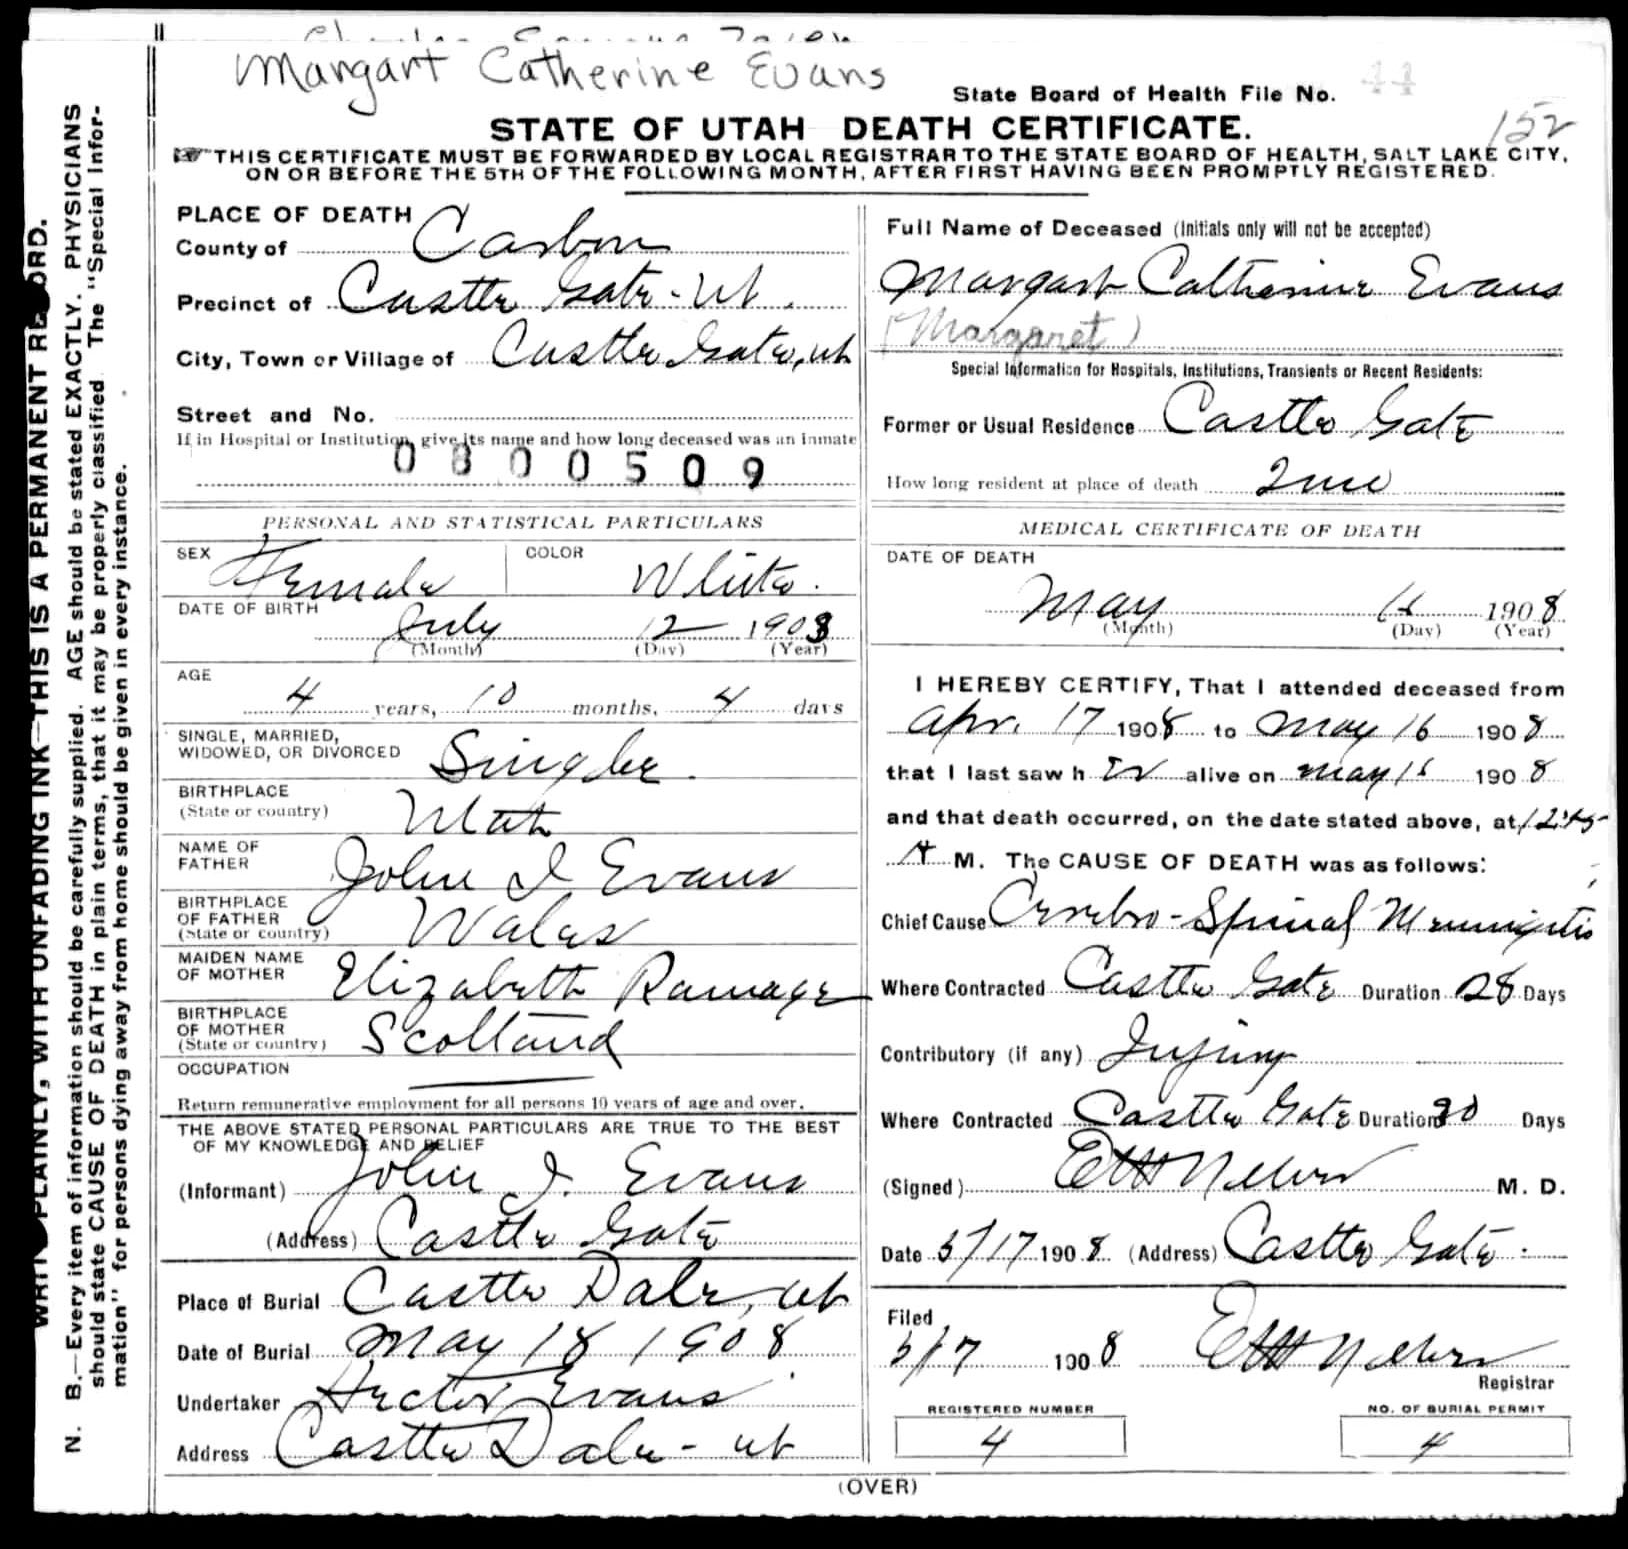 Margart Catherine Evans
State Board of Health File No. 44
152
STATE OF UTAH DEATH CERTIFICATE.
THIS CERTIFICATE MUST BE FORWARDED BY LOCAL REGISTRAR TO THE STATE BOARD OF HEALTH, SALT LAKE CITY,
ON OR BEFORE THE 5TH OF THE FOLLOWING MONTH, AFTER FIRST HAVING BEEN PROMPTLY REGISTERED.
WRITE PLAINLY, WITH UNFADING INK—THIS IS A PERMANENT RECORD.
N. B.—Every item of information should be carefully supplied. AGE should be stated EXACTLY. PHYSICIANS
should state CAUSE OF DEATH in plain terms, that it may be properly classified. The "Special Infor-
mation" for persons dying away from home should be given in every instance.
PLACE OF DEATH
County of Carbon
Precinct of Castle Gate-Ut.
City, Town or Village of Castle Gate, ut
Street and No.
If in Hospital or Institution, give its name and how long deceased was an inmate
0800509
PERSONAL AND STATISTICAL PARTICULARS
SEX Female COLOR White.
DATE OF BIRTH
July 12 1903
(Month) (Day) (Year)
AGE
4 years, 10 months, 4 days
SINGLE, MARRIED,
WIDOWED, OR DIVORCED Single.
BIRTHPLACE
(State or country) Utah
NAME OF
FATHER John I Evans
BIRTHPLACE
OF FATHER
(State or country) Wales
MAIDEN NAME
OF MOTHER Elizabeth Ramage
BIRTHPLACE
OF MOTHER
(State or country) Scotland
OCCUPATION
Return remunerative employment for all persons 10 years of age and over.
THE ABOVE STATED PERSONAL PARTICULARS ARE TRUE TO THE BEST
OF MY KNOWLEDGE AND BELIEF
(Informant) John I. Evans
(Address) Castle Gate
Place of Burial Castle Dale, ut
Date of Burial May 18 1908
Undertaker Hector Evans
Address Castle Dale - ut
Full Name of Deceased (Initials only will not be accepted)
Margart Catherine Evans
(Margaret)
Special Information for Hospitals, Institutions, Transients or Recent Residents:
Former or Usual Residence Castle Gate
How long resident at place of death
MEDICAL CERTIFICATE OF DEATH
DATE OF DEATH
May 16 1908
(Month) (Day) (Year)
I HEREBY CERTIFY, That I attended deceased from
Apr. 17 1908 to May 16 1908
that I last saw h er alive on May 16 1908
and that death occurred, on the date stated above, at 12:45
A M. The CAUSE OF DEATH was as follows:
Chief Cause Cerebro-Spinal Meningitis
Where Contracted Castle Gate Duration 28 Days
Contributory (if any) Injury
Where Contracted Castle Gate Duration 30 Days
(Signed) M. D.
Date 5/17 1908 (Address) Castle Gate -
Filed
5/17 1908
Registrar
REGISTERED NUMBER
4
NO. OF BURIAL PERMIT
4
(OVER)